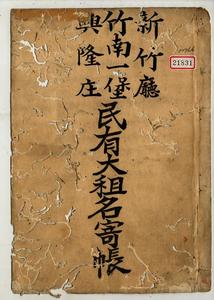 新竹廳
竹南一堡
興隆庄
民有大租名寄帳
21831